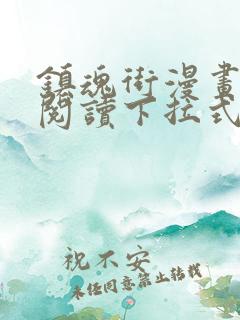 鎮魂街漫畫
閱讀下拉式
祝不安
未經同意禁止轉載